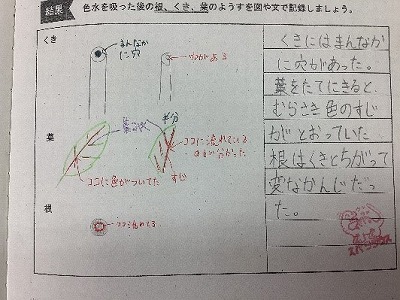 結果
色水を吸った後の根、くき、葉のようすを図や文で記録しましょう。
くき
まんなか
に穴
葉
半分
ココに流れている
のが分かった
ココに色がついてた
すじ
根
くきにはまんなか
に穴があった。
葉をたてにきると
むらさき色のすじ
がとおっていた
根はくきとちがって
変なかんじだっ
た。